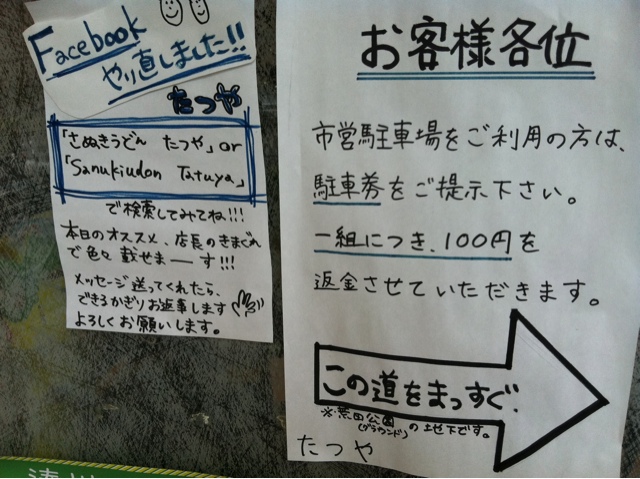 Facebook
やり直しました!!
たつや
「さぬきうどん たつや」or
「Sanukiudon Tatuya」
で検索してみてね!!!
本日のオススメ、店長のきまぐれ
で色々載せまーす!!!
メッセージ送ってくれたら、
できるかぎりお返事します
よろしくお願いします。
お客様各位
市営駐車場をご利用の方は、
駐車券をご提示下さい。
一組につき、100円を
返金させていただきます。
この道をまっすぐ.
※荒田公園(グラウンド)の地下です。
たつや